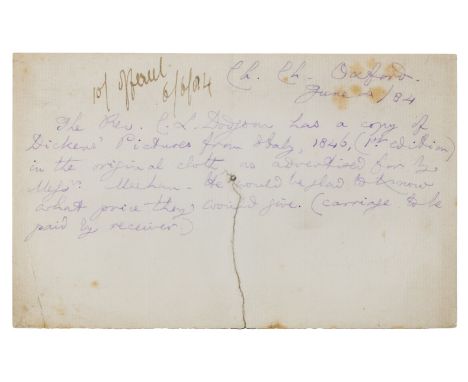 Ch. Ch. Oxford.
June 4/84
10/ offered
6/6/84
The Rev. C. L. Dodgson has a copy of
Dickens' Pictures from Italy, 1846, (1st edition)
in the original cloth, as advertised for by
Messrs. Meehan. He would be glad to know
what price they would give. (carriage to be
paid by receiver)